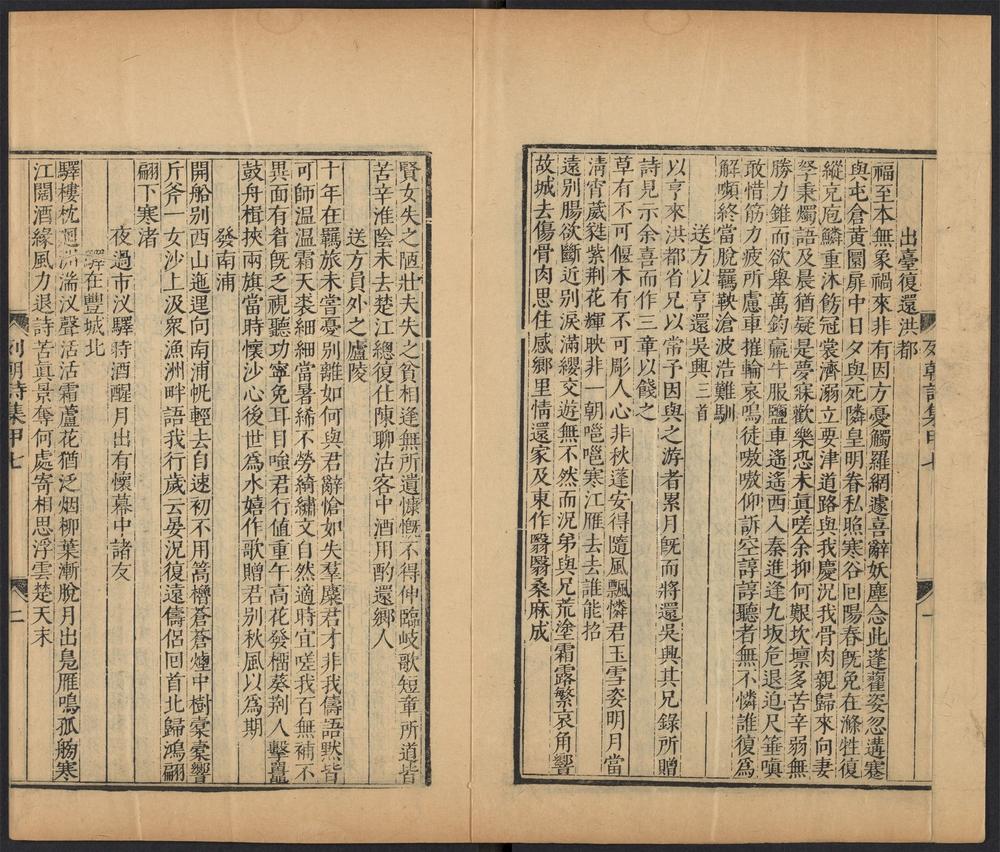 列朝詩集甲七
一
出臺復還洪都
福至本無象禍來非有因方憂觸羅網遽喜辭妖塵念此蓬藋姿忽遘蹇
與屯倉黃圜扉中日夕與死隣皇明春私煦寒谷回陽春旣免在滌牲復
縱克庖鱗重沐飭冠裳濟溺立要津道路與我慶況我骨肉親歸來向妻
孥秉燭語及晨猶疑是夢寐歡樂恐未眞嗟余抑何艱坎壈多苦辛弱無
勝力錐而欲舉萬鈞羸牛服鹽車遙遙西入秦進逢九坂危退迫尺箠嗔
敢惜筋力疲所慮車摧輪哀鳴徒嗷嗷仰訴空諄諄聽者無不憐誰復爲
解嚬終當脫羈鞅滄波浩難馴
送方以亨還吳興三首
以亨來洪都省兄以常予因與之游者累月旣而將還吳興其兄錄所贈
詩見示余喜而作三章以餞之
草有不可偃木有不可彫人心非秋蓬安得隨風飄憐君玉雪姿明月當
淸宵葳蕤紫荆花輝映非一朝嗈嗈寒江雁去去誰能招
遠別腸欲斷近別淚滿纓交遊無不然而況弟與兄荒塗霜露繁哀角響
故城去傷骨肉思住感鄉里情還家及東作翳翳桑麻成
賢女失之陋壯夫失之貧相逢無所遺慷慨不得伸臨岐歌短章所道皆
苦辛淮陰未去楚江總復仕陳聊沽客中酒用酌還鄉人
送方員外之廬陵
十年在羈旅未嘗憂別離如何與君辭愴如失羣麋君才非我儔語默皆
可師溫溫霜天裘細細當暑絺不勞綺繡文自然適時宜嗟我百無補不
異面有眉旣乏視聽功寧免耳目嗤君行値重午高花發榴葵荆人擊鼉
鼓舟楫挾兩旗當時懷沙心後世爲水嬉作歌贈君別秋風以爲期
發南浦
開船別西山迤邐向南浦帆輕去自速初不用篙櫓蒼蒼煙中樹橐橐響
斤斧一女沙上汲衆漁洲畔語我行歲云晏況復遠儔侶回首北歸鴻翩
翩下寒渚
夜過市汊驛時酒醒月出有懷幕中諸友
驛在豐城北
驛樓枕湍汊聲活活霜蘆花猶泛烟柳葉漸脫月出鳧雁鳴孤舫寒
江闊酒緣風力退詩苦眞景奪何處寄相思浮雲楚天末
列朝詩集甲七
二